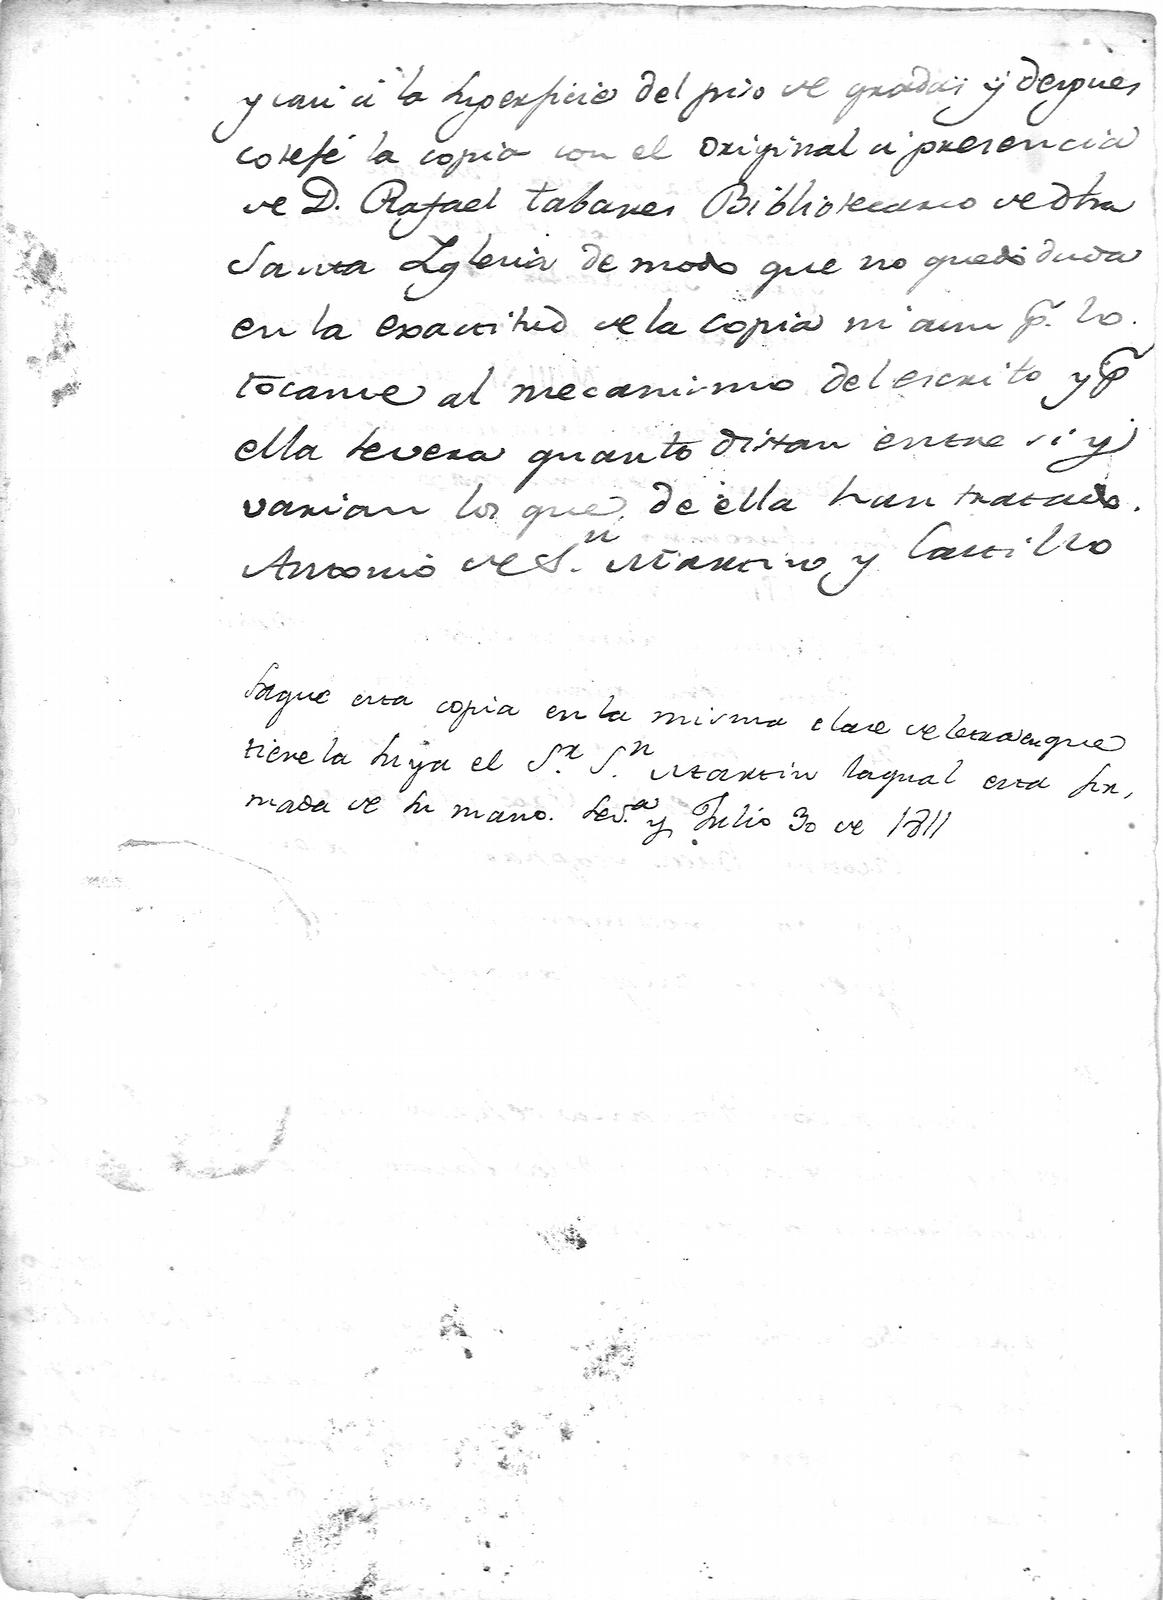 y casi á la superficie del piso de gradas y despues
cotejé la copia con el original a presencia
de D. Rafael Tabares Bibliotecario de dha
Santa Iglesia de modo que no quedó duda
en la exactitud de la copia ni aun p.ʳ lo
tocante al mecanismo del escrito y p
ella severa quanto distan entre si y
varian los que de ella han tratado.
Antonio de S.ⁿ Martin y Castillo
Saque esta copia en la misma clase de letra en que
tiene la suya el S.ʳ S.ⁿ Martin laqual esta fir,
mada de su mano. Sev.ª y Julio 30 de 1811